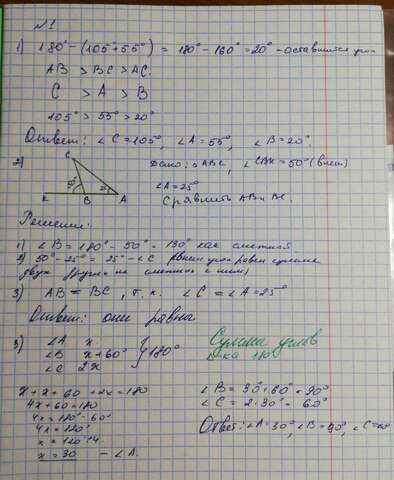 №1
1) 180° - (105° + 55°) = 180° - 160° = 20° - оставшийся угол
AB > BC > AC.
C > A > B
105° > 55° > 20°
Ответ: ∠C = 105°, ∠A = 55°, ∠B = 20°.
2)
Дано: △ABC, ∠CBK = 50° (внеш)
∠A = 25°
Сравнить AB и BC.
C
50°
25°
K B A
Решение:
1) ∠B = 180° - 50° = 130° как смежной
2) 50° - 25° = 25° - ∠C (внеш угол равен сумме
двух других не смежных с ним)
3) AB = BC, т.к. ∠C = ∠A = 25°
Ответ: они равны.
3) ∠A x
∠B x + 60° } 180°
∠C 2x
Сумма углов
△ка 180°
x + x + 60 + 2x = 180
4x + 60 = 180
4x = 180° - 60°
4x = 120°
x = 120:4
x = 30 - ∠A.
∠B = 30° + 60° = 90°
∠C = 2·30° = 60°
Ответ: ∠A = 30°, ∠B = 90°, ∠C = 60°